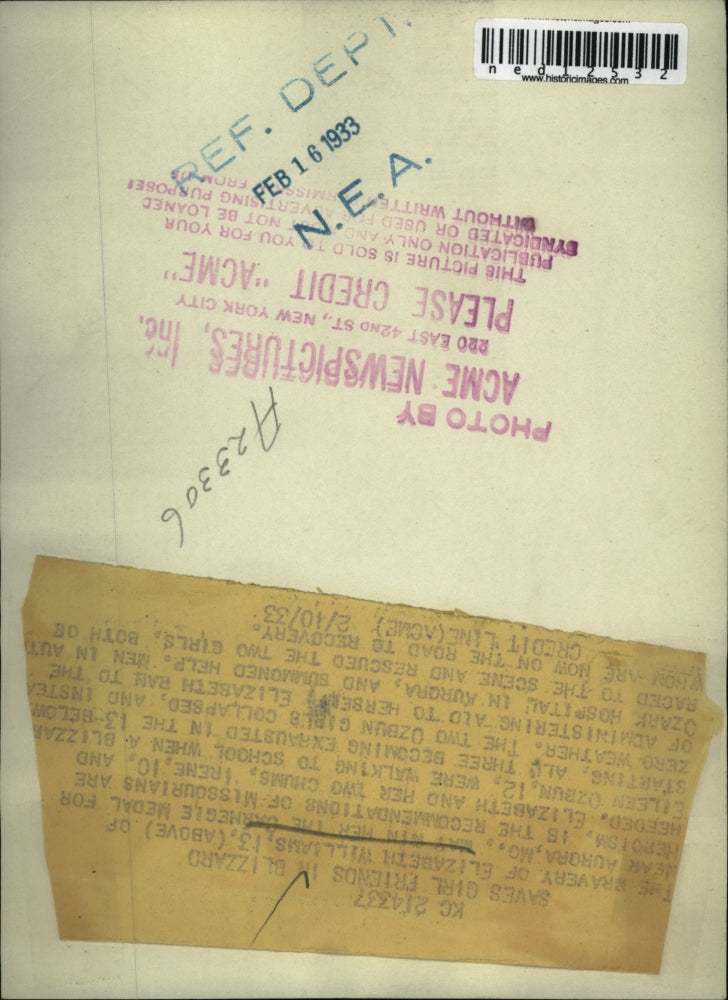 www.historicimages.com
ned12532
www.historicimages.com
REF. DEPT.
FEB 16 1933
N.E.A.
PHOTO BY
ACME NEWSPICTURES, Inc.
220 EAST 42ND ST., NEW YORK CITY
PLEASE CREDIT "ACME"
THIS PICTURE IS SOLD TO YOU FOR YOUR
PUBLICATION ONLY AND MUST NOT BE LOANED
SYNDICATED OR USED FOR ADVERTISING PURPOSES
WITHOUT WRITTEN PERMISSION FROM US
A23306
KC 214337
SAVES GIRL FRIENDS IN BLIZZARD
THE BRAVERY OF ELIZABETH WILLIAMS, 13, (ABOVE) OF
NEAR AURORA, MO., MAY WIN HER THE CARNEGIE MEDAL FOR
HEROISM, IF THE RECOMMENDATIONS OF MISSOURIANS ARE
HEEDED. ELIZABETH AND HER TWO CHUMS, IRENE, 10, AND
EILEEN OZBUN, 12, WERE WALKING TO SCHOOL WHEN A BLIZZAR
STARTING, ALL THREE BECOMING EXHAUSTED IN THE 13-BELOW
ZERO WEATHER. THE TWO OZBUN GIRLS COLLAPSED, AND INSTEA
OF ADMINISTERING AID TO HERSELF, ELIZABETH RAN TO THE
OZARK HOSPITAL IN AURORA, AND SUMMONED HELP. MEN IN AUT
RACED TO THE SCENE AND RESCUED THE TWO GIRLS, BOTH OF
WHOM ARE NOW ON THE ROAD TO RECOVERY.
CREDIT LINE (ACME) 2/10/33